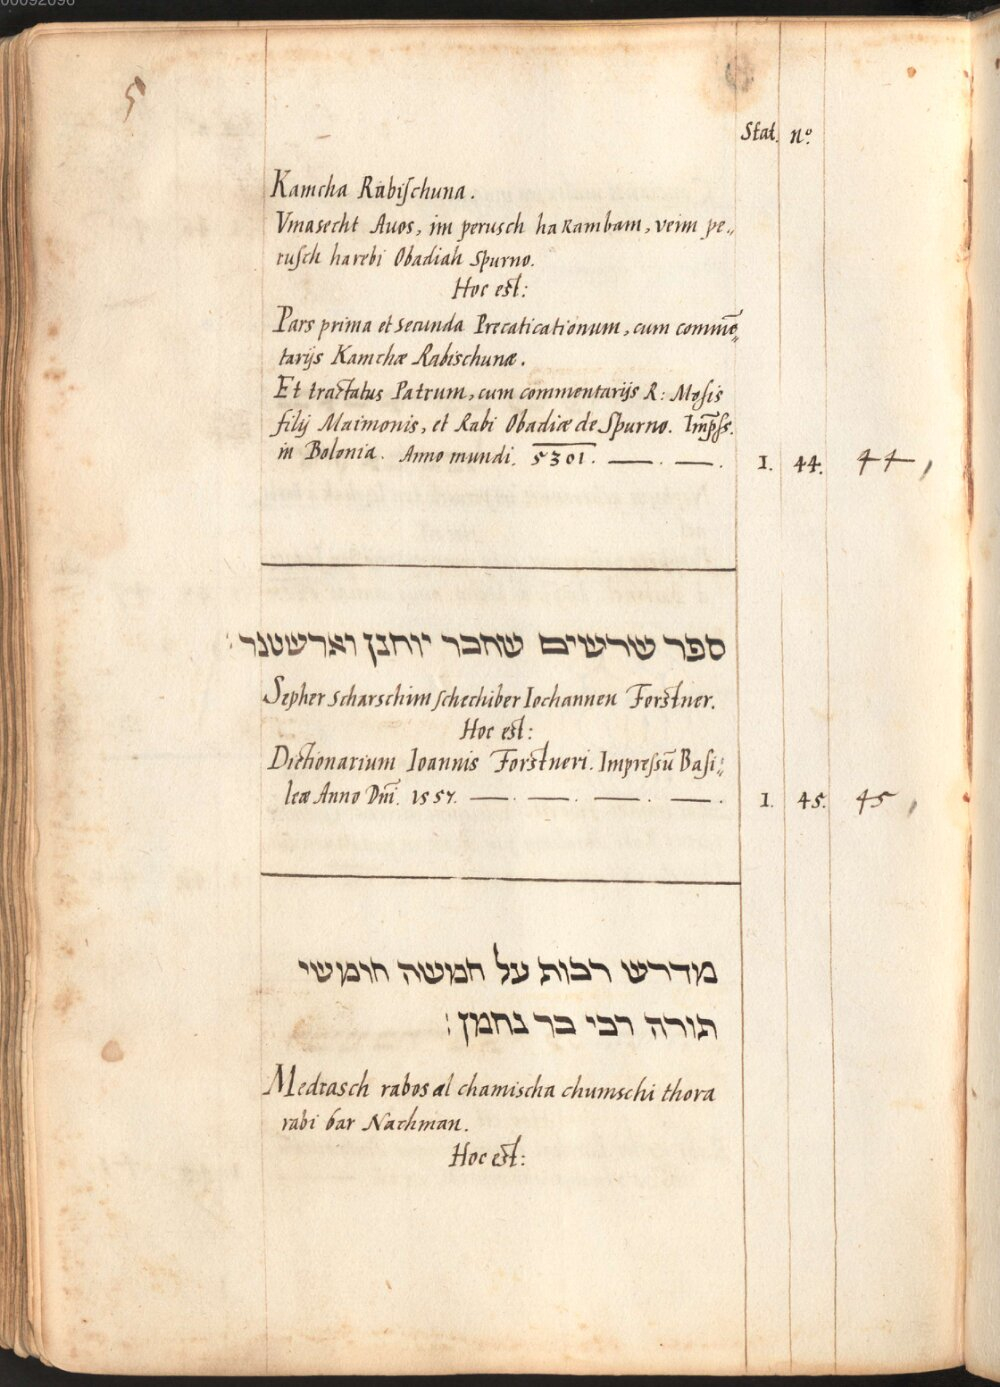 5
Stat. nº.
Kamcha Rabiſchuna.
Vmasecht Auos, im perusch ha Rambam, veim pe„
ruſch harebi Obadiah Spurno.
Hoc est:
Pars prima et secunda Precaticationum, cum commē„
tarijs Kamchæ Rabischunæ.
Et tractatus Patrum, cum commentarijs R: Mosis
filij Maimonis, et Rabi Obadiæ de Spurno. Imp̄ſs.
in Bolonia. Anno mundi. 5301. —. —. 1. 44. 44,
ספר שרשים שחבר יוחנן וארשטנר:
Sepher scharschim ſchechiber Iochannen Forstner.
Hoc est:
Dictionarium Ioannis Forstneri. Impreſsū Baſi„
leæ Anno Dn̄i. 1557. —. —. —. —. 1. 45. 45,
מדרש רבות על חמשה חימושי
תורה רבי בר נחמן:
Medrasch rabos al chamischa chumschi thora
rabi bar Nachman.
Hoc est: